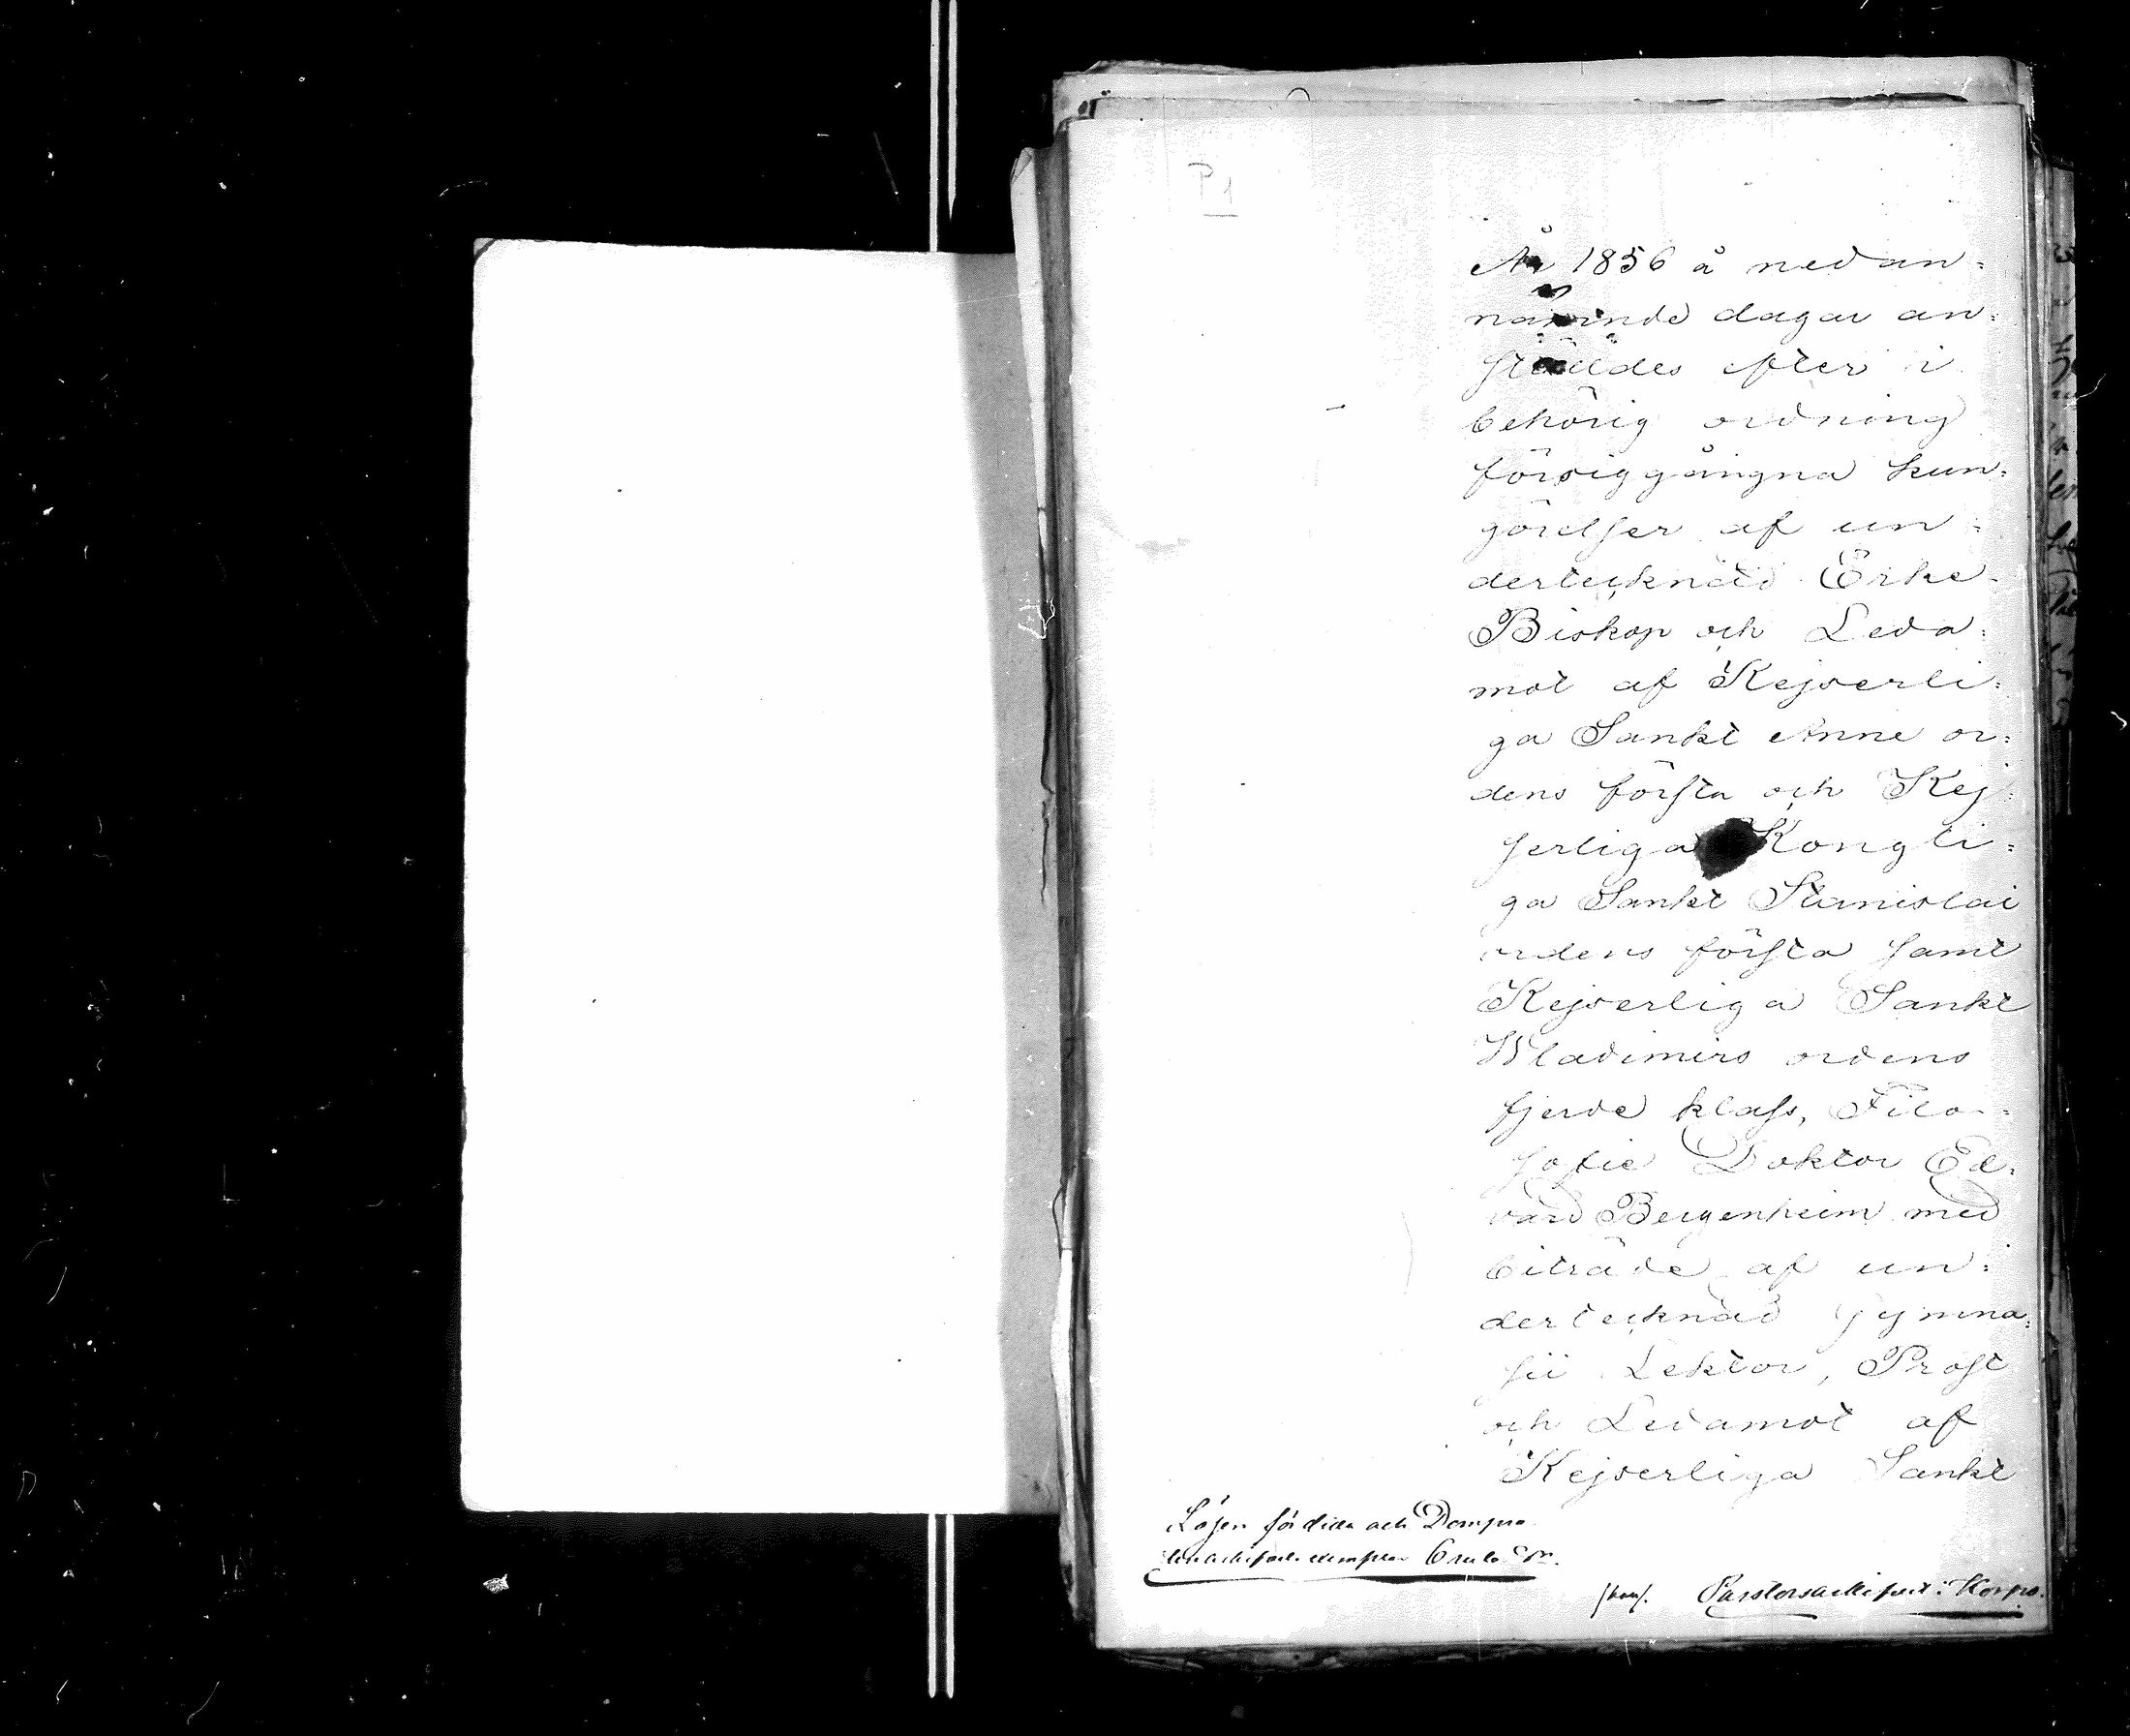 P 1
År 1856 å nedan=
nämnde dagar an=
ställdes efter i
behörig ordning
försiggångna kun=
görelser af un=
dertecknad Erke=
Biskop och Leda=
mot af Kejserli=
ga Sankt Anne or=
dens första och Kej=
serliga Kongli=
ga Sankt Stanislai
ordens första samt
Kejserliga Sankt
Wladimirs ordens
fjerde klass, Filo=
sofie Doktor Ed=
vard Bergenheim med
biträde af un=
dertecknad Gymna=
sii Lektor, Prost
och Ledamot af
Kejserliga Sankt
Lösen för detta och
exemplar
Pastorsarchivet i Korpo.